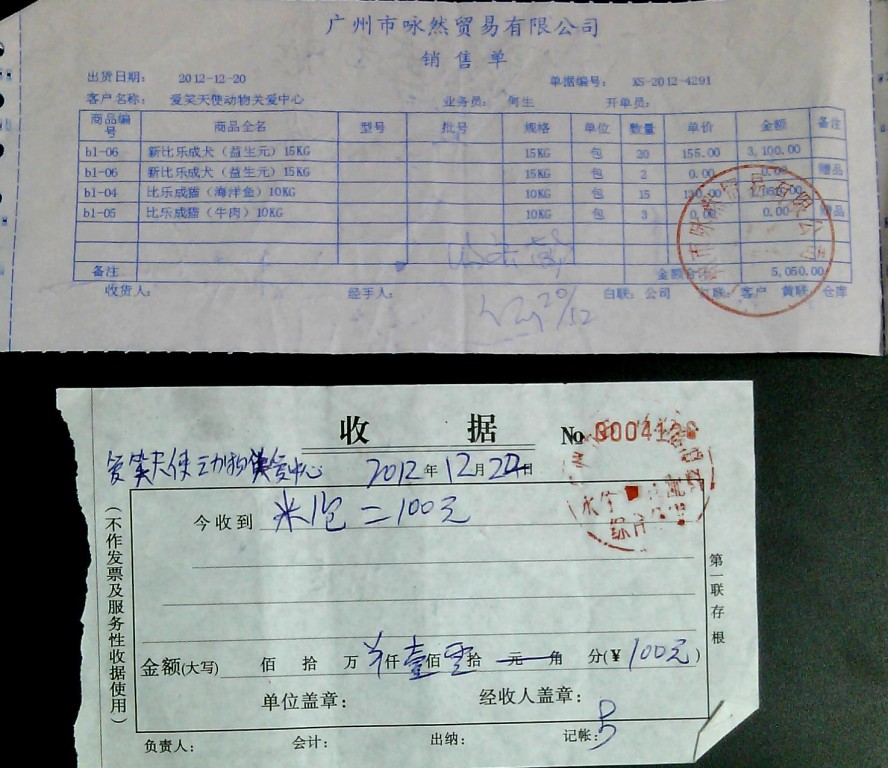 广州市咏然贸易有限公司
销售单
出货日期: 2012-12-20 单据编号: XS-2012-4291
客户名称: 爱笑天使动物关爱中心 业务员: 何生 开单员:
商品编号 商品全名 型号 批号 规格 单位 数量 单价 金额 备注
b1-06 新比乐成犬（益生元）15KG 15KG 包 20 155.00 3,100.00
b1-06 新比乐成犬（益生元）15KG 15KG 包 2 0.00 0.00 赠品
b1-04 比乐成猫（海洋鱼）10KG 10KG 包 15
b1-05 比乐成猫（牛肉）10KG 10KG 包 3 0.00 0.00 赠品
备注 金额合计 5,050.00
收货人: 经手人: 白联: 公司 红联: 客户 黄联: 仓库
收 据 No 0004126
爱笑天使动物关爱中心 2012年12月22日
今收到 米1包 = 100元
金额(大写) 佰 拾 万 仟壹佰零拾 元 角 分(¥ 100元)
单位盖章: 经收人盖章:
负责人: 会计: 出纳: 记帐:
(不作发票及服务性收据使用)
第一联存根